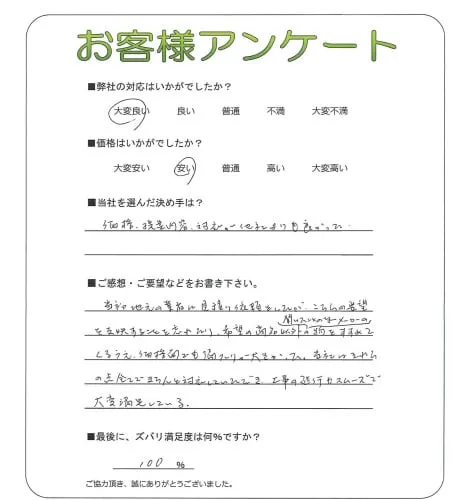 お客様アンケート
■弊社の対応はいかがでしたか？
大変良い 良い 普通 不満 大変不満
■価格はいかがでしたか？
大変安い 安い 普通 高い 大変高い
■当社を選んだ決め手は？
価格、提案内容、対応が他社よりも良かった。
■ご感想・ご要望などをお書き下さい。
当初地元の業者に見積り依頼をしたが、こちらの希望
聞いたことのないメーカーの
を反映することを 希望の商品以外の物をすすめて
くるうえ、価格面でも開たりが大きかった。
の点全てできちんと対応していただき、工事の進行もスムーズで
大変満足している。
■最後に、ズバリ満足度は何％ですか？
100 ％
ご協力頂き、誠にありがとうございました。